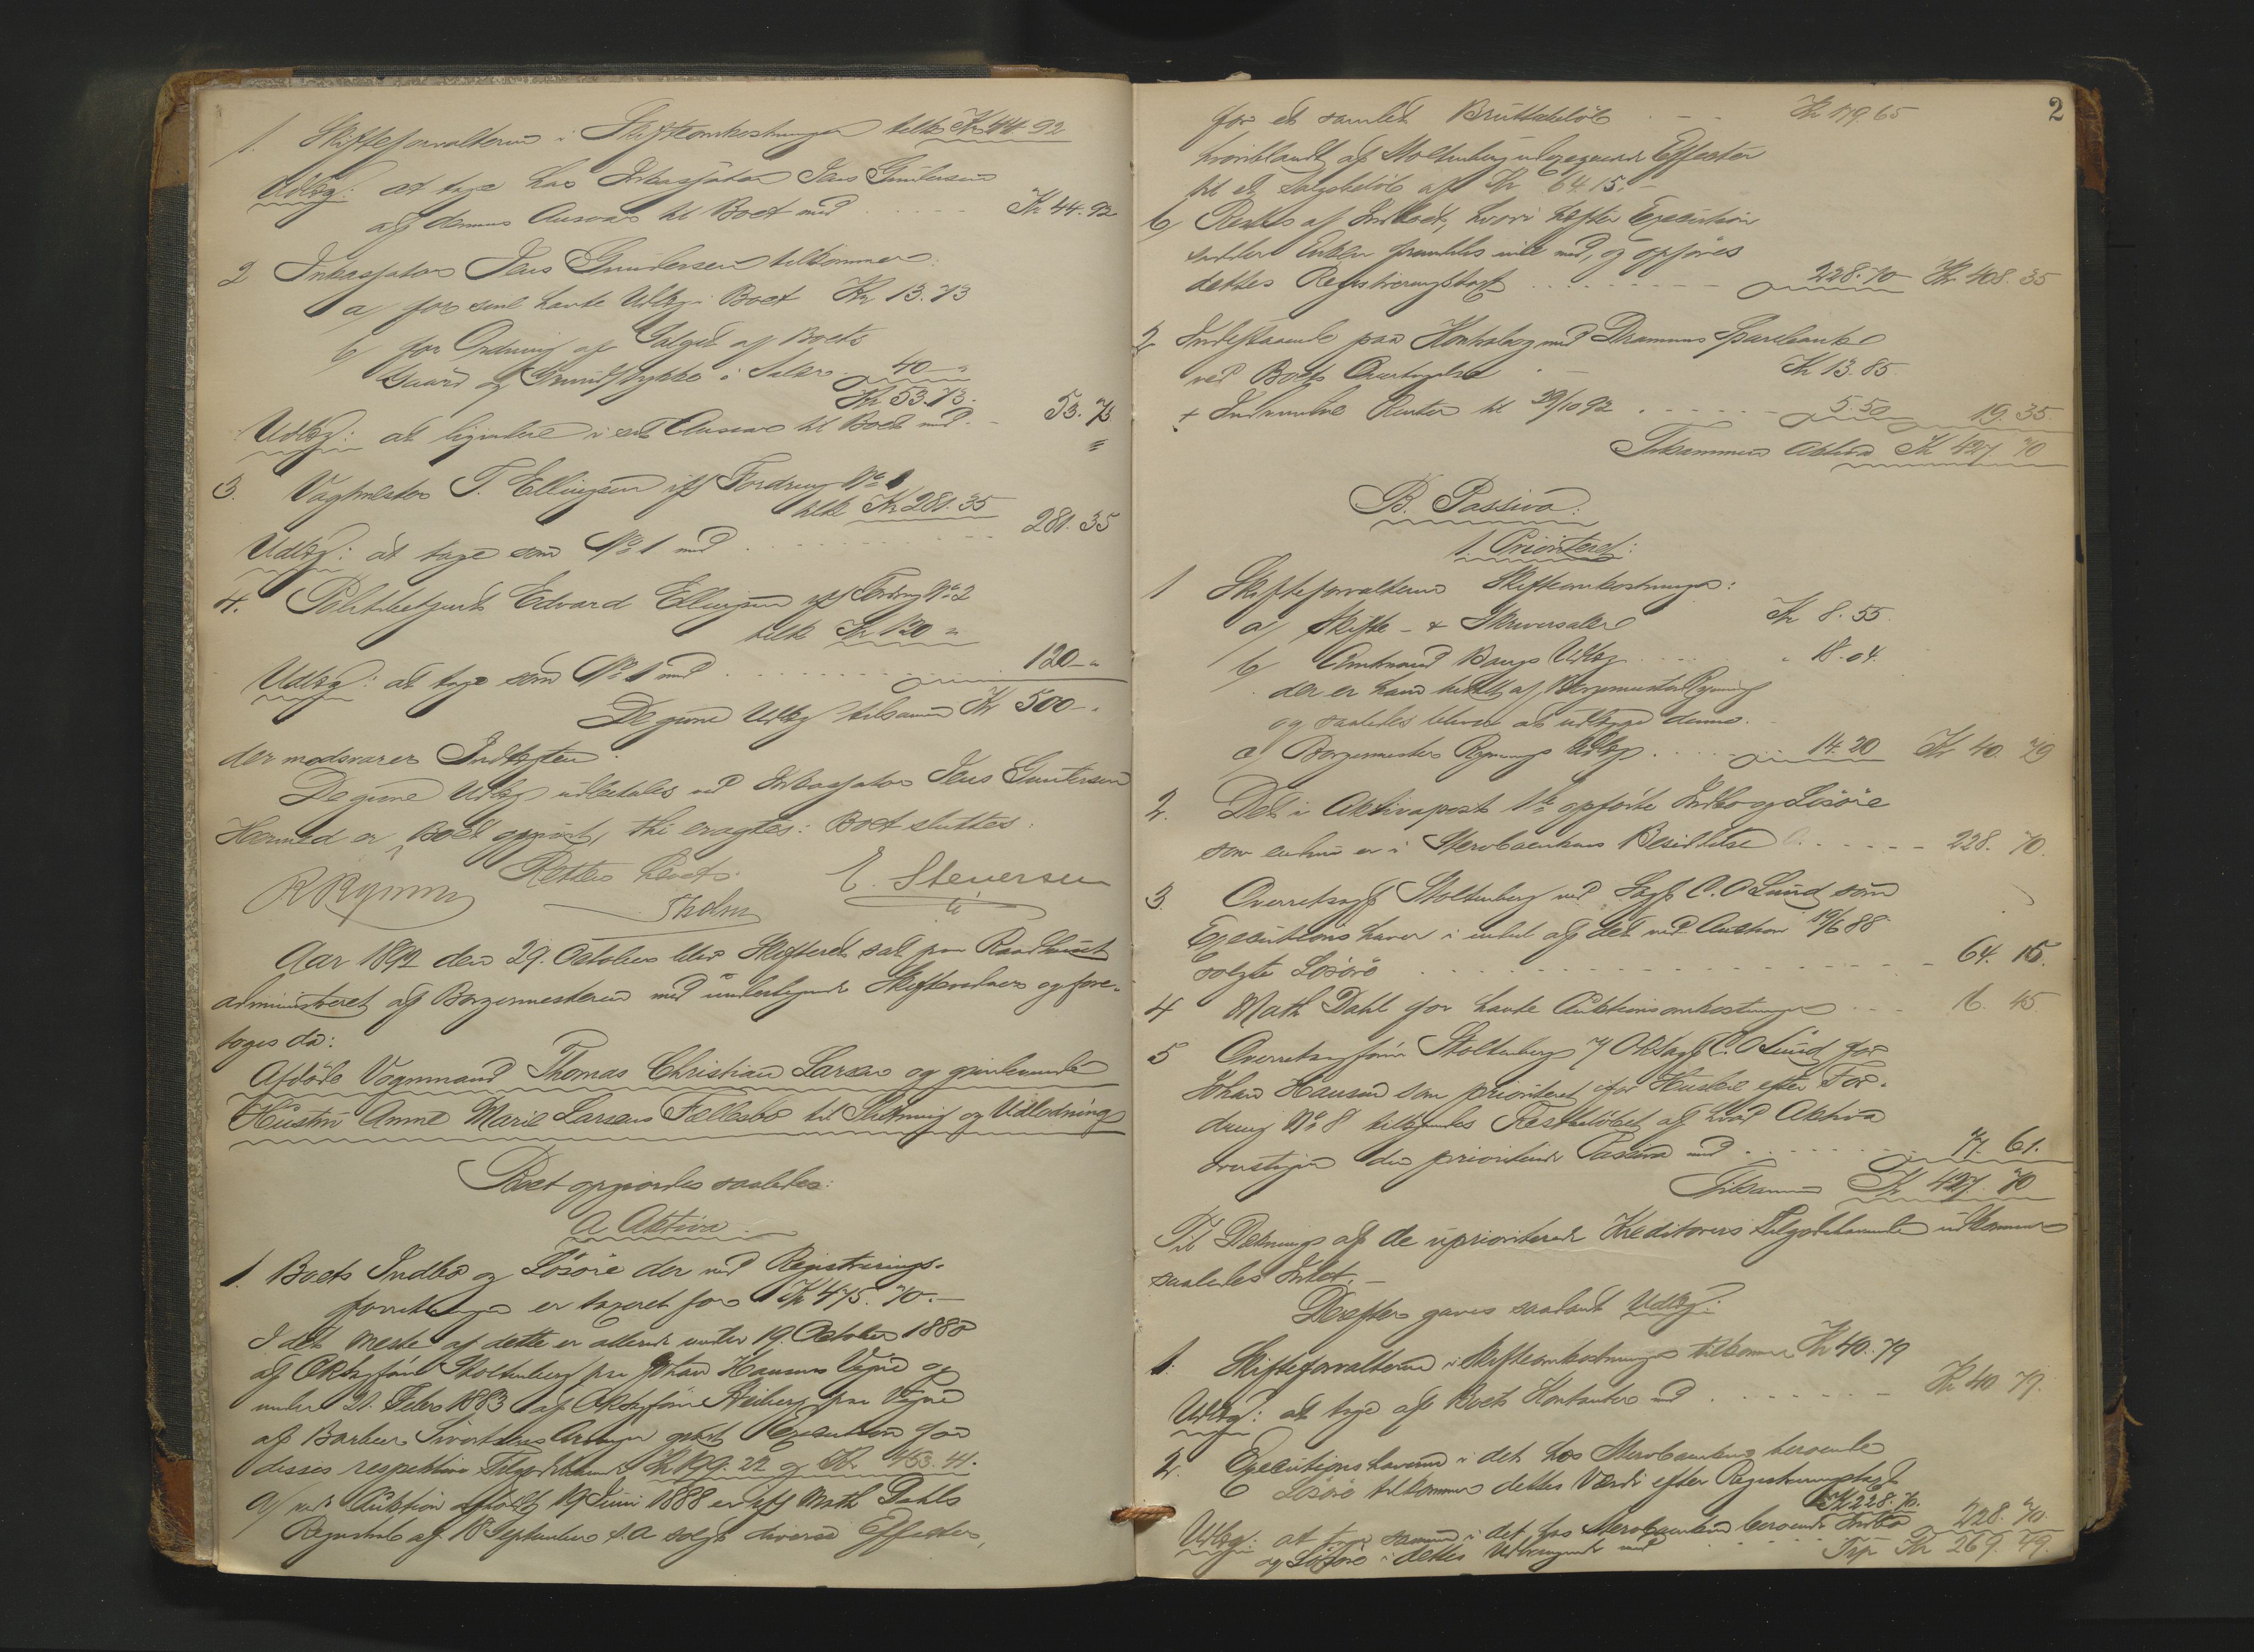 1. Skifteforvalteren i Skifteomkostninger tilk. Kr 44.92
Udlæg: at tage hos Inkassator Jens Gundersen
af dennes Ansvar til Boet med Kr 44.92
2 Inkassator Jens Gundersen tilkommer:
a/ for sine havte Udlæg i Boet Kr 13.73
b/ for Ordning af Salget af Boets
Gaard og Grundstykke i 40 "
Kr 53.73.
Udlæg: at liquidere i sit Ansvar til Boet med 53.73
3. Vagtmester T. Ellingsen iflg Fordring No 1
tilk Kr 281.35
Udlæg: at tage som No 1 med 281.35
4. Politibetjent Edvard Ellingsen iflg Fordring No 2
tilk Kr 120 "
Udlæg: at tage som No 1 med 120 "
De givne Udlæg tilsammen Kr 500 "
der modsvarer Indtægten.
De givne Udlæg udbetales ved Inkassator Jens Gundersen
Hermed er Boet opgjort, thi eragtes: Boet sluttes.
Retten hævet.
R Rynning Tholm E. Steversen
Aar 1892 den 29. October blev Skifteret sat paa Raadhuset
administreret af Borgermesteren med underskrevne Skiftevidner og fore-
toges da:
Afdøde Vognmand Thomas Christian Larsen og gjenlevende
Hustru Anne Marie Larsens Fællesbo til Slutning og Udlodning
Boet opgjordes saaledes:
A. Aktiva.
1. Boets Indbo og Løsøre der ved Registrerings-
forretningen er taxeret for Kr 475.70.
I det meste af dette er allerede under 19. October 1880
af Stoltenberg paa Johan Hansens Vegne og
under 21. Febr 1883 af Heiberg paa Vegne
af Barber gjort Execution for
disses respektive Tilgodehavende Kr 199.22 og Kr 463.41.
a/ ved Auktion afholdt 19 Juni 1888 er iflg Math Dahls
Regnskab af 18 September s.A. solgt diverse Effekter,
2
for et samlet Bruttobeløb Kr 179.65
hvoriblandt af Stoltenberg udpegede Effekter
til et Salgsbeløb af Kr 64.15.
b/ Resten af Indboet, hvori hæfter Execution
sidder Enken fremdeles inde med, og opføres
dettes Registreringstaxt 228.70 Kr. 408.35
2 Indestaaende paa Kontrabog med Drammens Sparebank
ved Boets Overtagelse Kr 13.85
+ Indvundne Renter til 29/10 92 5.50 19.35
Tilsammen Aktiva Kr 427.70
B. Passiva:
1. Prioritered:
1 Skifteforvalterens Skifteomkostninger:
a/ Skifte- & Skriversalær Kr 8.55
b/ Amtmand Bangs Udlæg " 18.04.
der er ham betalt af Borgermester Rynning
og saaledes bliver at udlægge denne.
c/ Borgermester Rynnings Udlæg 14.20 Kr. 40.79
2. Det i Aktivapost 1b opførte Indbo og Løsøre
som endnu er i Stervboenkens Besiddelse 228.70.
3. Overretssagf Stoltenberg ved Sagf C. O Lund som
Executionshaver i endel af det ved Auktion 19/6 88
solgte Løsøre 64.15.
4 Math Dahl for havte Auktionsomkostninger 16.45
5 Overretssagfører Stoltenberg v/ C. O Lund for
Johan Hansen som prioriteret for Husleie efter For-
dring No 8 tilkjendes Restbeløbet af hvad Aktiva
overstiger den prioriterede Passiva med 77.61.
Tilsammen Kr 427.70
Til Dækning af de uprioriterede Kreditorers Tilgodehavende udkommer
saaledes Intet.
Derefter gaves saadant Udlæg:
1. Skifteforvalteren i Skifteomkostninger tilkommer Kr 40.79
Udlæg: at tage af Boets Kontanter med Kr 40.79.
2. Executionshaverne i det hos Stervboenken beroende
Løsøre tilkommer dettes Værdi efter Registreringstaxt
Kr 228.70.
Udlæg: at tage samme i det hos Stervboenken beroende Indbo
og Løsøre i dettes Udbringende med 228.70.
Trsp. Kr 269.49.